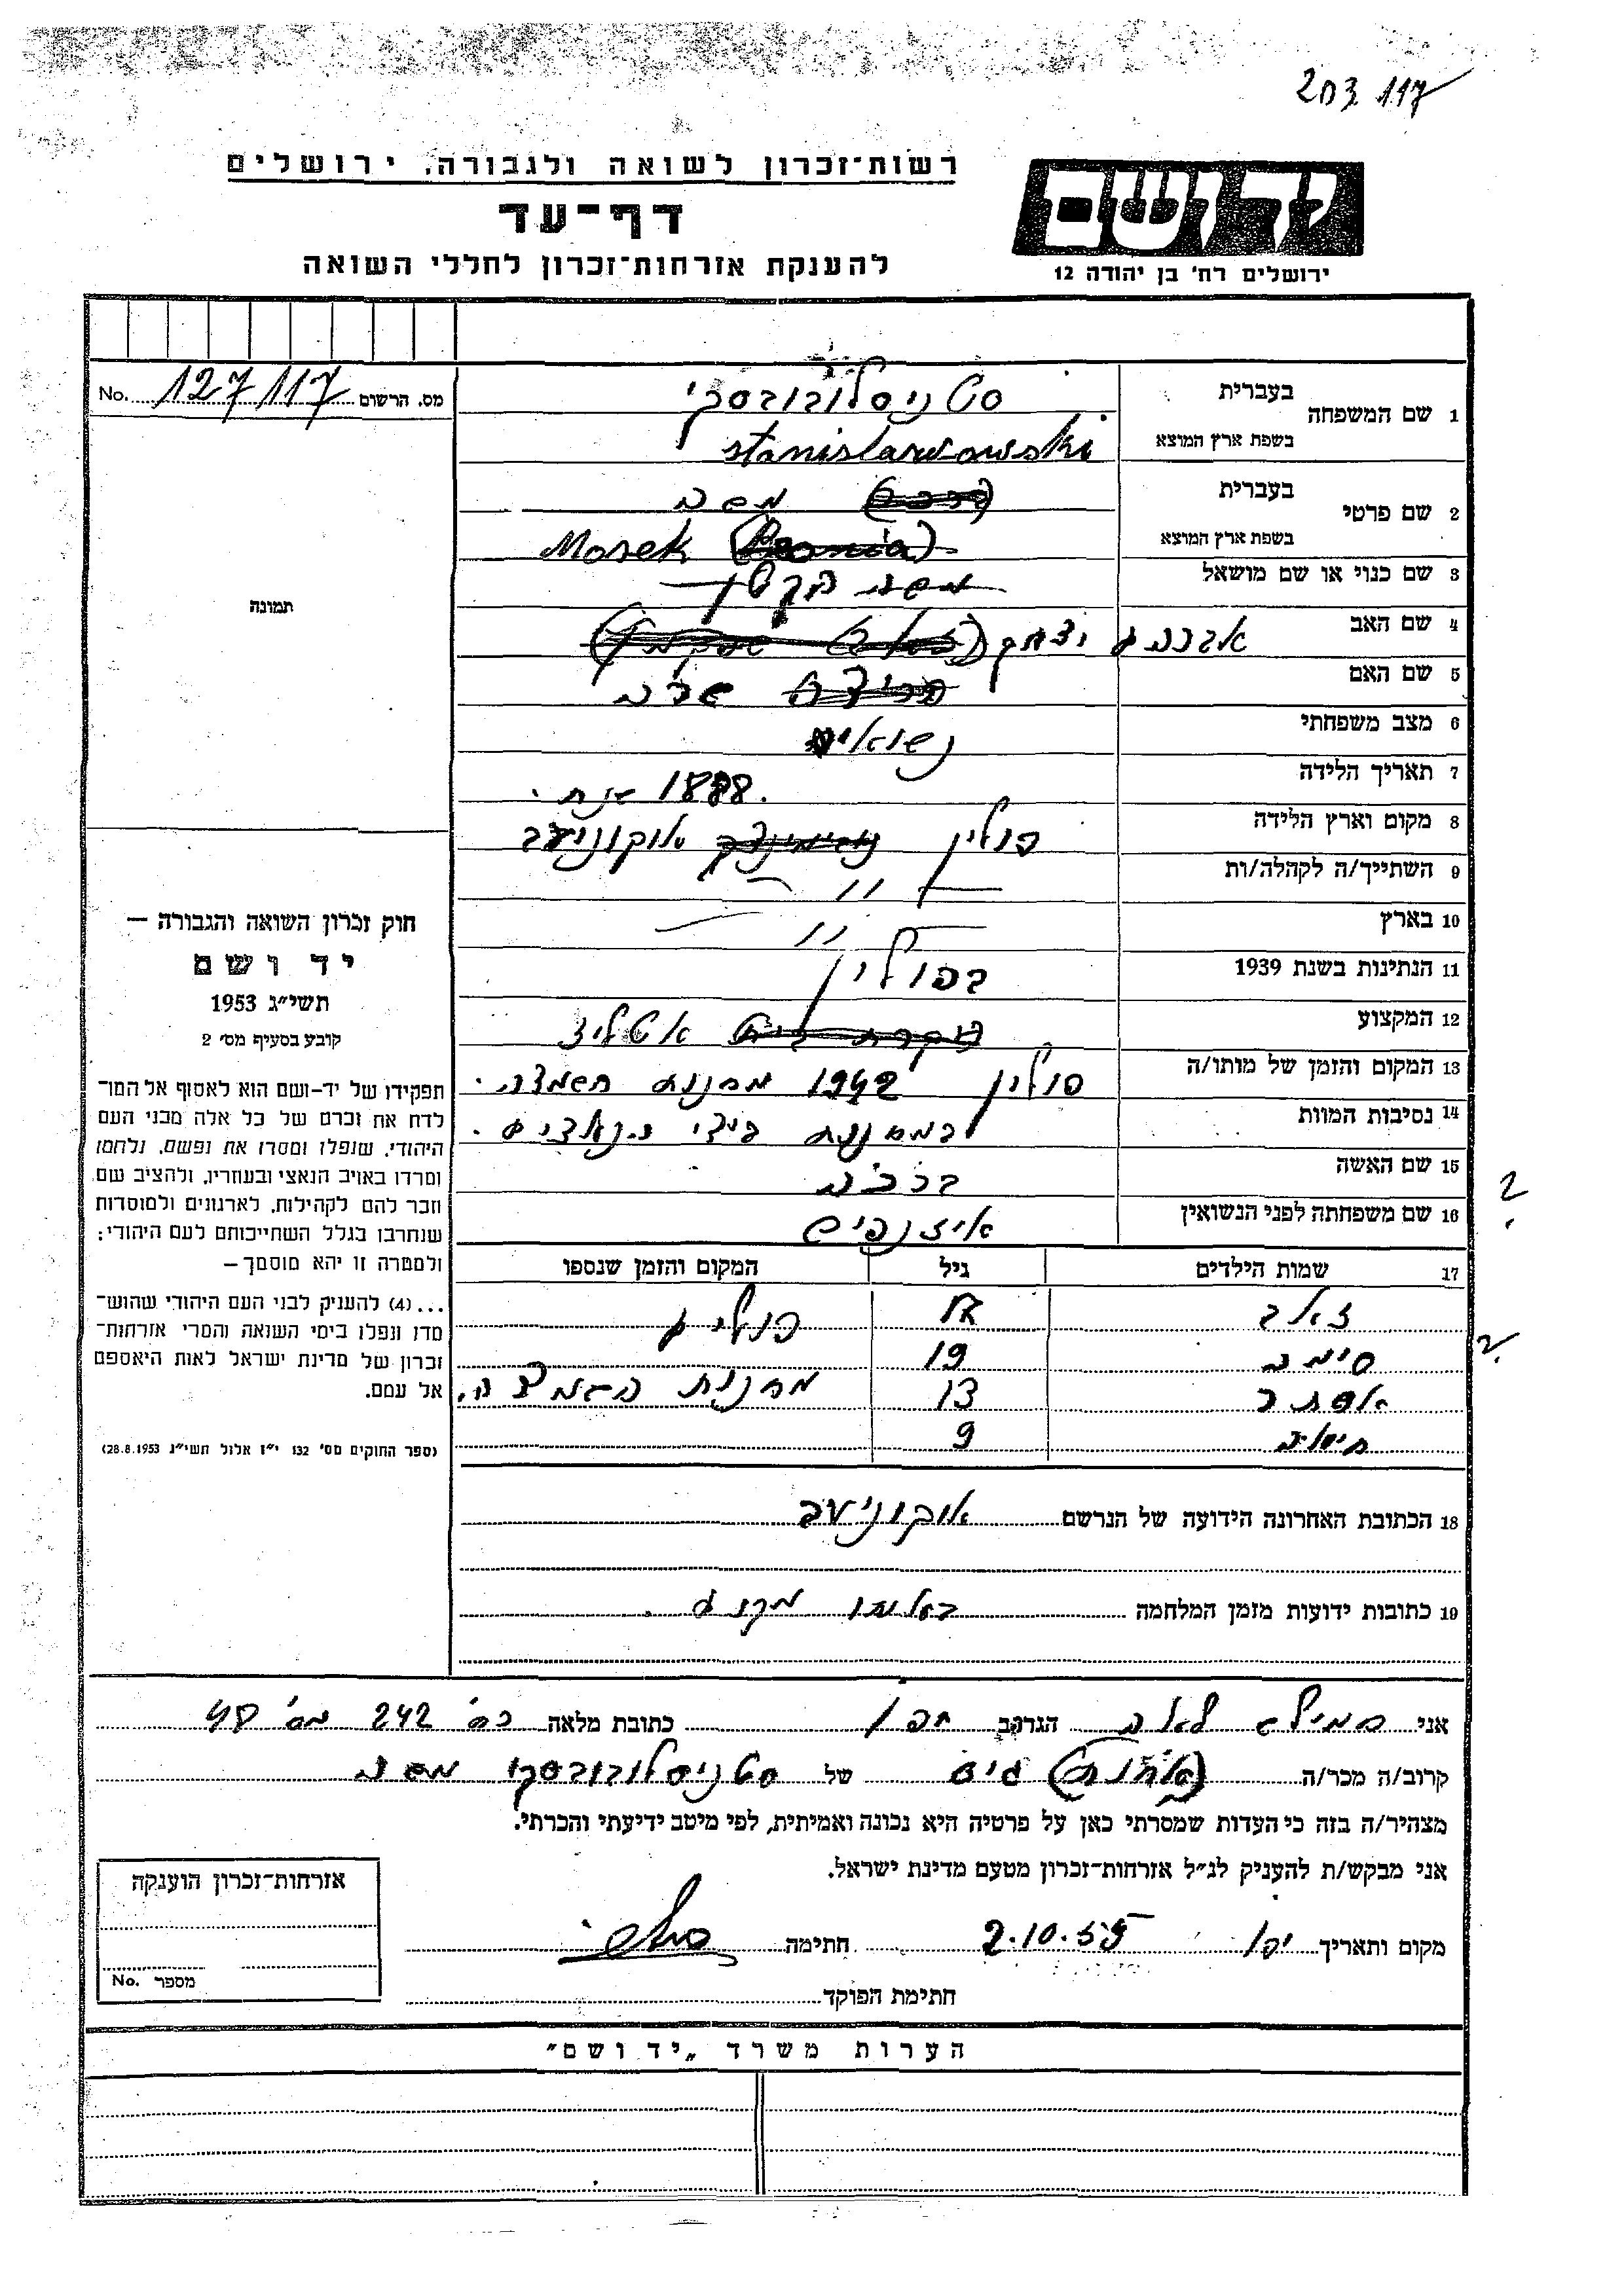 203 117
רשות־זכרון לשואה ולגבורה, ירושלים
ידושם
דף־עד
להענקת אזרחות־זכרון לחללי השואה
ירושלים רח' בן יהודה 12
מס. הרשום 127117 No.
1 שם המשפחה
בעברית סטניסלובובסקי
בשפת ארץ המוצא stanislawowski
2 שם פרטי
בעברית משה
בשפת ארץ המוצא Mosek
3 שם כנוי או שם מושאל משה הקטן
4 שם האב אברהם יצחק
5 שם האם שרה
6 מצב משפחתי נשואים
7 תאריך הלידה 1888 שנת.
8 מקום וארץ הלידה פולין אוקוניעב
9 השתייך/ה לקהלה/ות — " —
10 בארץ — " —
11 הנתינות בשנת 1939 בפולין
12 המקצוע אטליז
13 המקום והזמן של מותו/ה פולין 1942 מחנות השמדה.
14 נסיבות המוות במחנות בידי הנאצים.
15 שם האשה ברכה
16 שם משפחתה לפני הנשואין איזנפיש
?
17 שמות הילדים גיל המקום והזמן שנספו
זאב פולין
סימה 19
אסתר 13 מחנות השמדה.
9
?
18 הכתובת האחרונה הידועה של הנרשם אוקוניעב
19 כתובות ידועות מזמן המלחמה באותו מקום.
תמונה
חוק זכרון השואה והגבורה —
יד ושם
תשי״ג 1953
קובע בסעיף מס׳ 2
תפקידו של יד-ושם הוא לאסוף אל המו־
לדת את זכרם של כל אלה מבני העם
היהודי, שנפלו ומסרו את נפשם, נלחמו
ומרדו באויב הנאצי ובעוזריו, ולהציב שם
וזכר להם לקהילות, לארגונים ולמוסדות
שנחרבו בגלל השתייכותם לעם היהודי;
ולמטרה זו יהא מוסמך —
...(4) להעניק לבני העם היהודי שהוש־
מדו ונפלו בימי השואה והמרי אזרחות־
זכרון של מדינת ישראל לאות היאספם
אל עמם.
(ספר החוקים מס׳ 132 י״ז אלול תשי״ג 28.8.1953)
אני לאה הגר/ה ב יפו כתובת מלאה רח' 242 מס'
קרוב/ה מכר/ה גיס של סטניסלובובסקי משה
מצהיר/ה בזה כי העדות שמסרתי כאן על פרטיה היא נכונה ואמיתית, לפי מיטב ידיעתי והכרתי.
אני מבקש/ת להעניק לנ״ל אזרחות־זכרון מטעם מדינת ישראל.
מקום ותאריך יפו 2.10.55 חתימה
חתימת הפוקד
אזרחות־זכרון הוענקה
מספר No.
הערות משרד „יד ושם״